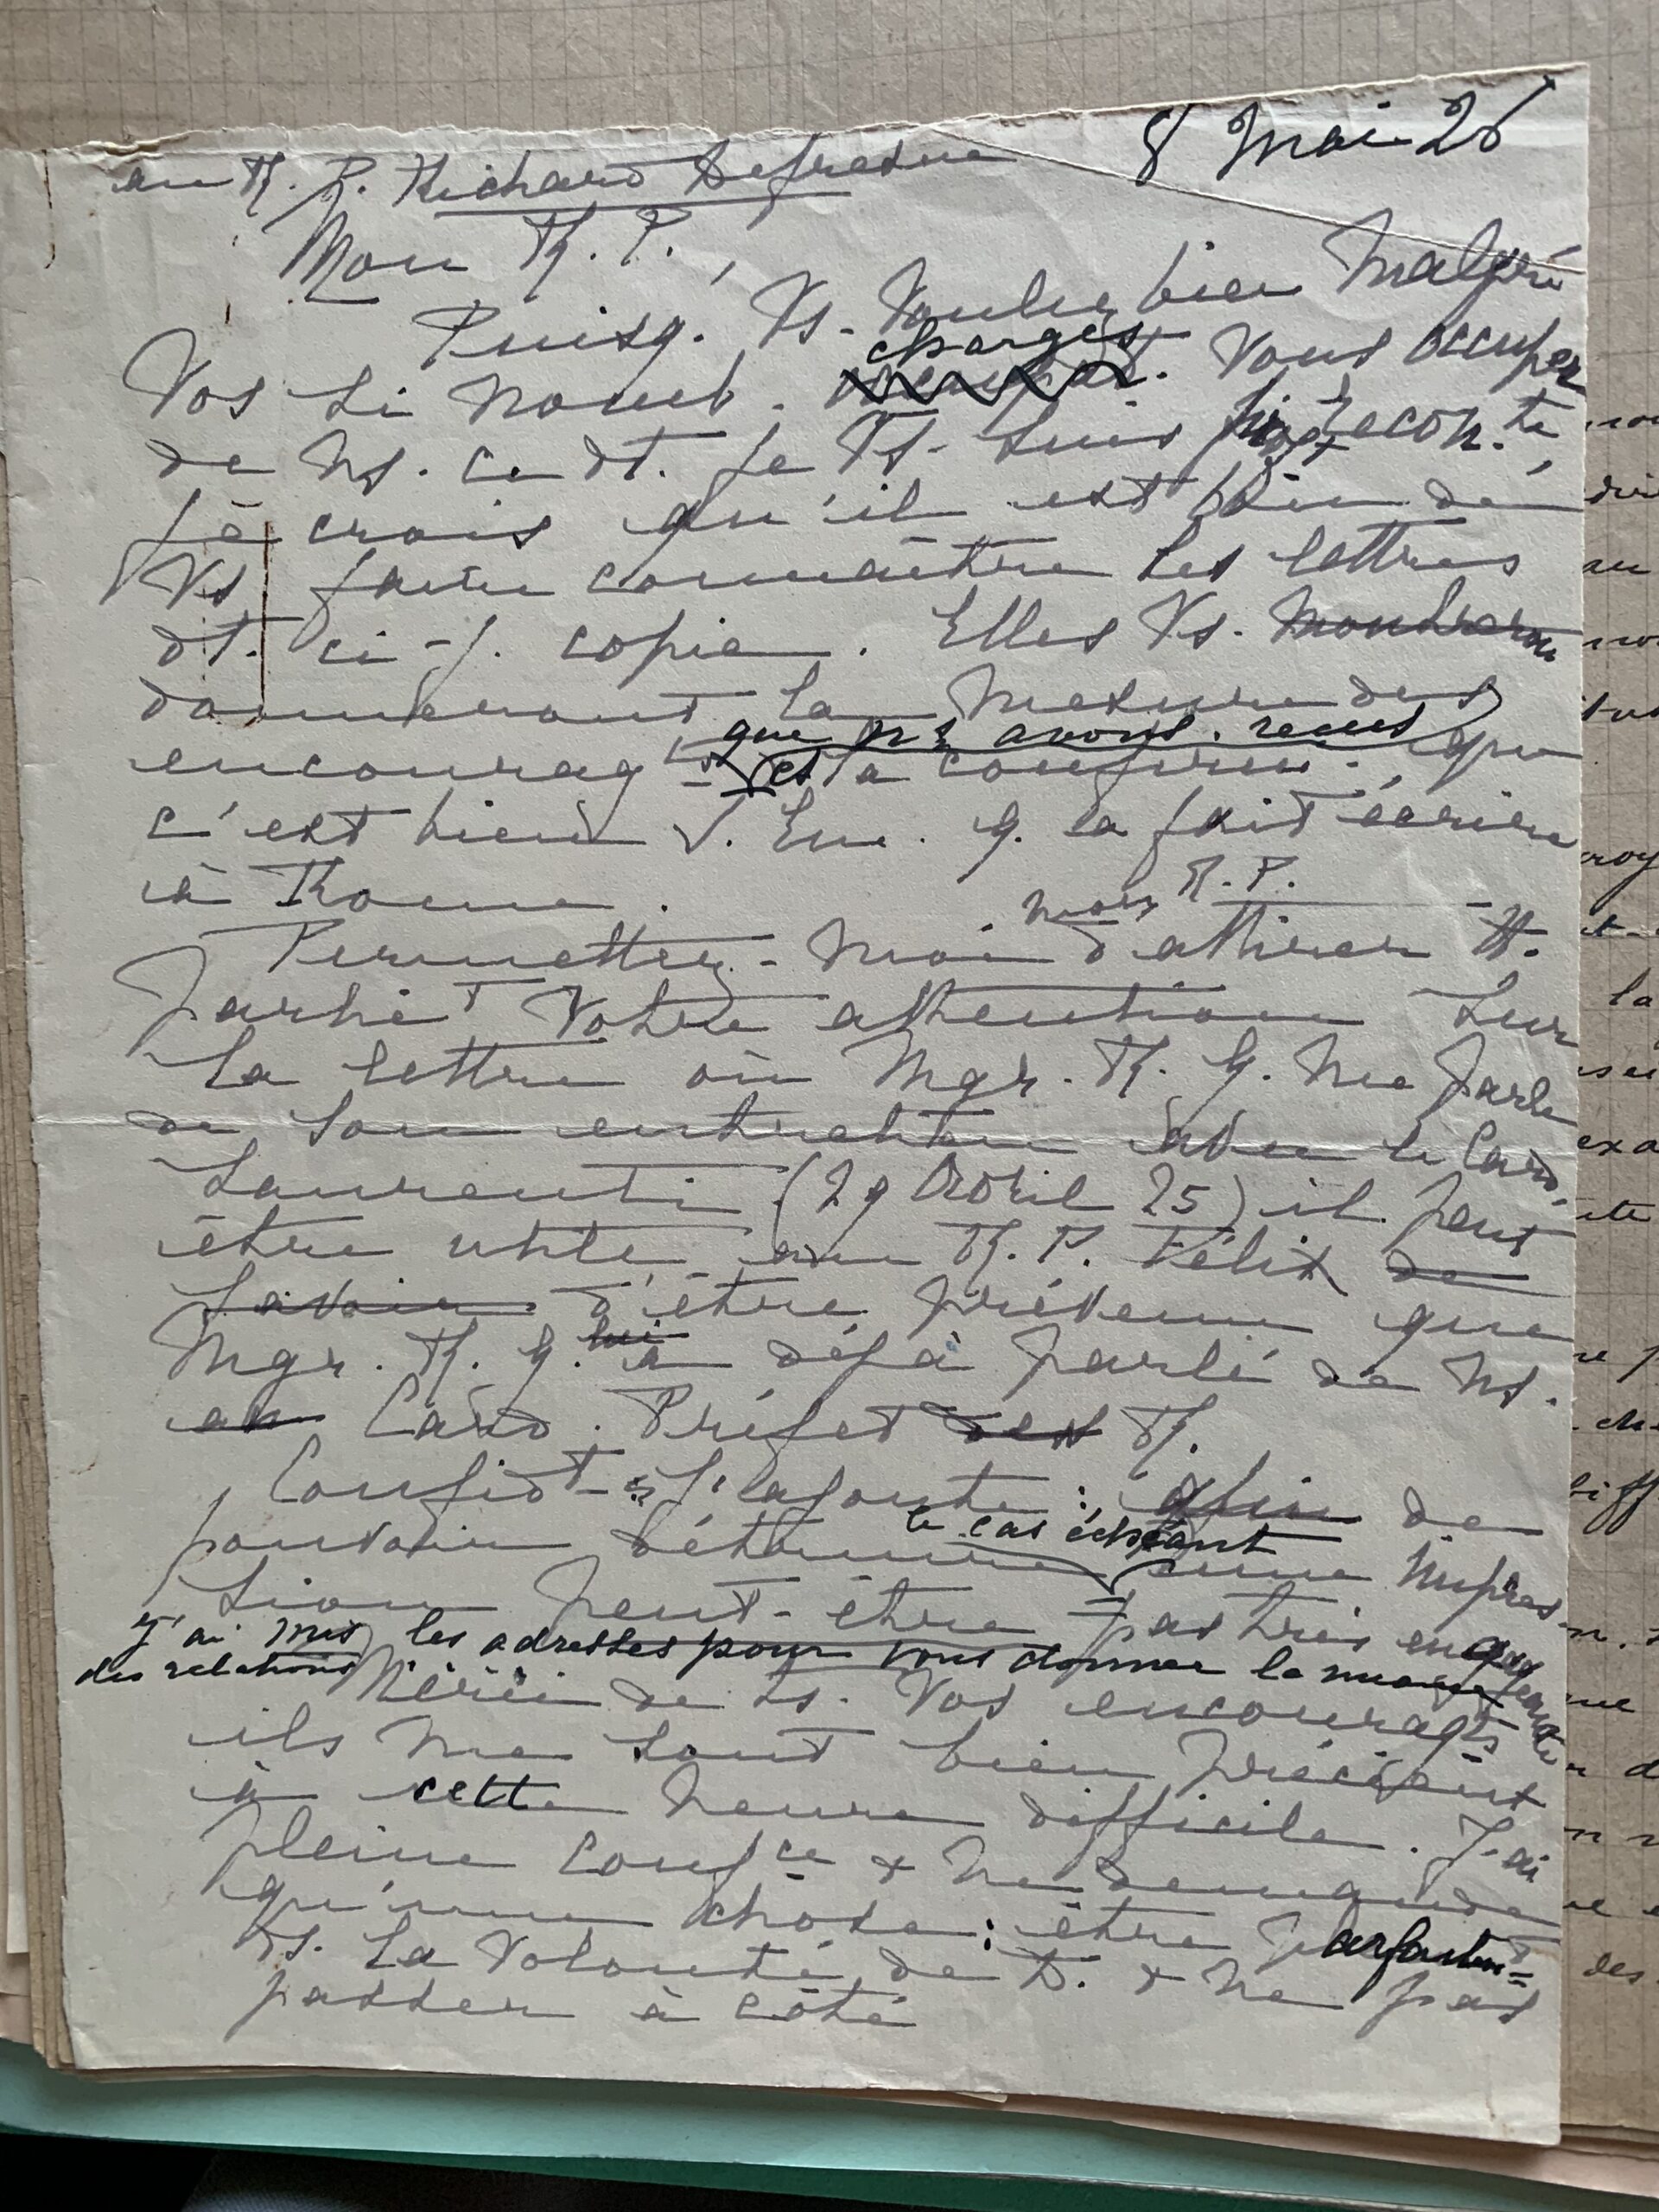 8 Mai 26
au R. P. Richard Defresne
Mon R. P.,
Puisq. Vs. Voulez bien Malgré
charges
Vos si nomb. Vous occuper
de Ns. ce dt. je Vs. suis recon.te,
je crois qu'il est bien de
Vs faire connaître les lettres
dt. ci-j. copie. Elles Vs. montreront
donneront la mesure des
que ns avons reçus
encourag.ts et la confirm., que
c'est bien S. Em. q. a fait écrire
à Rome.
mon R. P.
Permettez-moi d'attirer tt.
partic.t Votre attention sur
la lettre où Mgr. R. G. me parle
de son entretien avec le Card.
Laurenti (29 Avril 25) il peut
être utile au R. P. Félix de
savoir d'être prévenu que
lui
Mgr. R. G. a déjà parlé de Ns.
au Card. Préfet des R.
Confid.t j'ajoute: afin de
le cas échéant
pouvoir détourner une impres-
sion peut-être pas très engageante
J'ai mis les adresses pour vous donner la nuance
des relations
Merci de ts. Vos encourag.ts
ils me sont bien précieux
à cette heure difficile. J'ai
pleine conf.ce & ne demande
qu'une chose: être parfaitem.t
ds. la Volonté de D. & ne pas
passer à côté